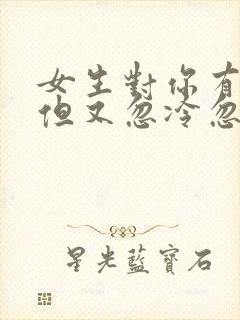 女生對你有
但又忽冷忽
星光藍寶石